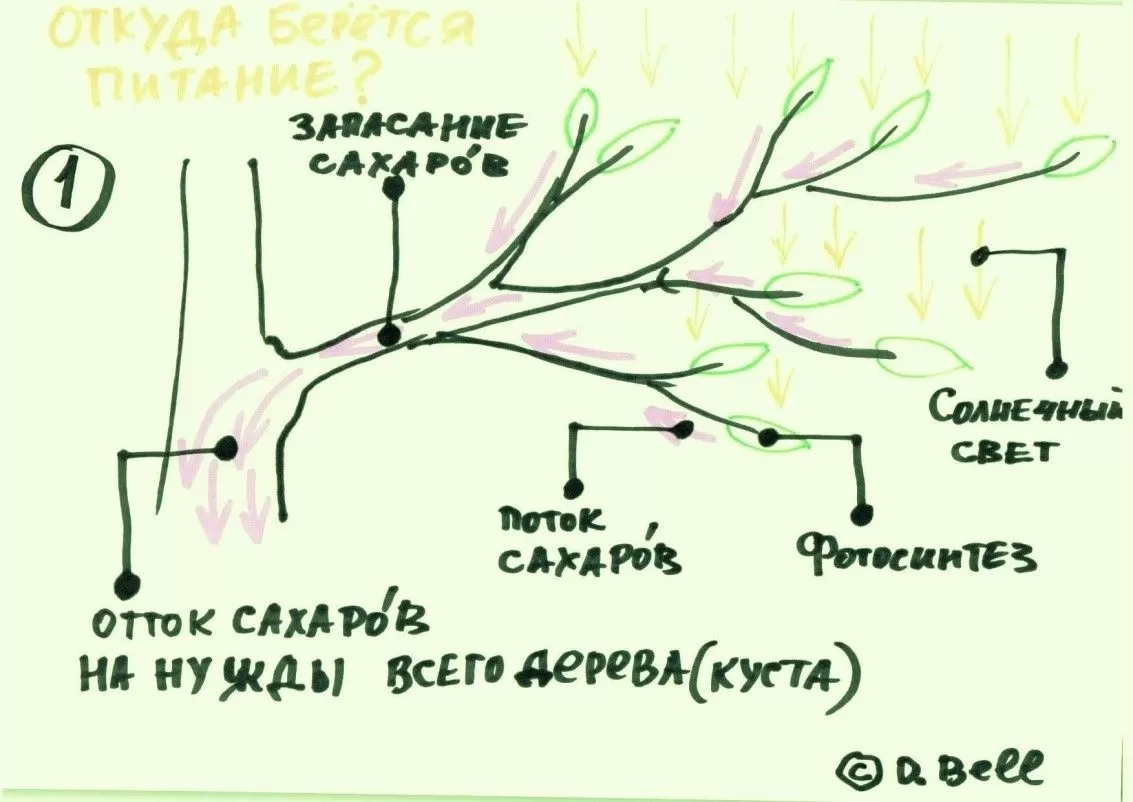 ОТКУДА БЕРЁТСЯ
ПИТАНИЕ?
1
ЗАПАСАНИЕ
САХАРО́В
СОЛНЕЧНЫЙ
СВЕТ
ПОТОК
САХАРО́В
ФОТОСИНТЕЗ
ОТТОК САХАРО́В
НА НУЖДЫ ВСЕГО ДЕРЕВА (КУСТА)
© D. Bell